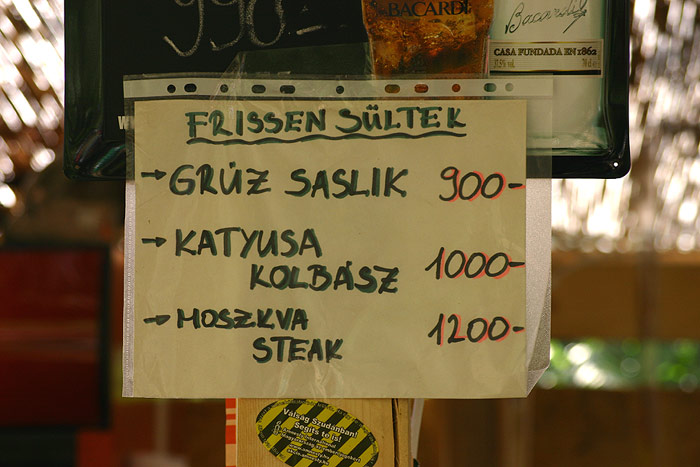 990.-
BACARDI
Bacardi
CASA FUNDADA EN 1862
37,5% vol. 70 cl e
FRISSEN SÜLTEK
→ GRÚZ SASLIK 900-
→ KATYUSA
KOLBÁSZ 1000-
→ MOSZKVA
STEAK 1200-
Válság Szudánban!
Segíts te is!